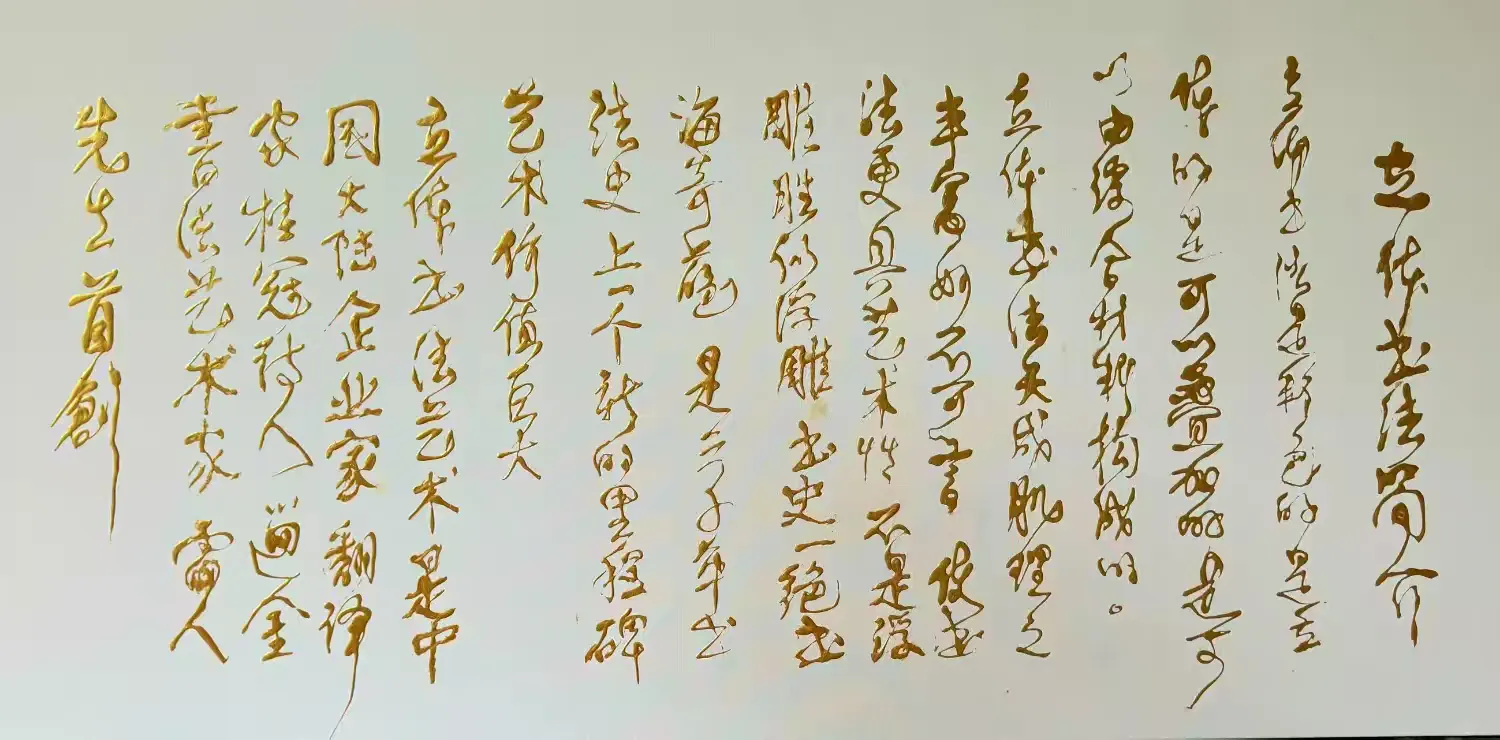 立体书法简介
立体书法是彩色的是立
体的是可以叠加的是可
以由综合材料构成的。
立体书法天成肌理之
丰富妙不可言 使书
法更具艺术性 不是浮
雕胜似浮雕 书史一绝书
海奇葩 是今草书
法史上一个新的里程碑
艺术价值巨大
立体书法艺术是中
国大陆企业家翻译
家桂冠诗人 金
书法艺术家 雷人
先生首創